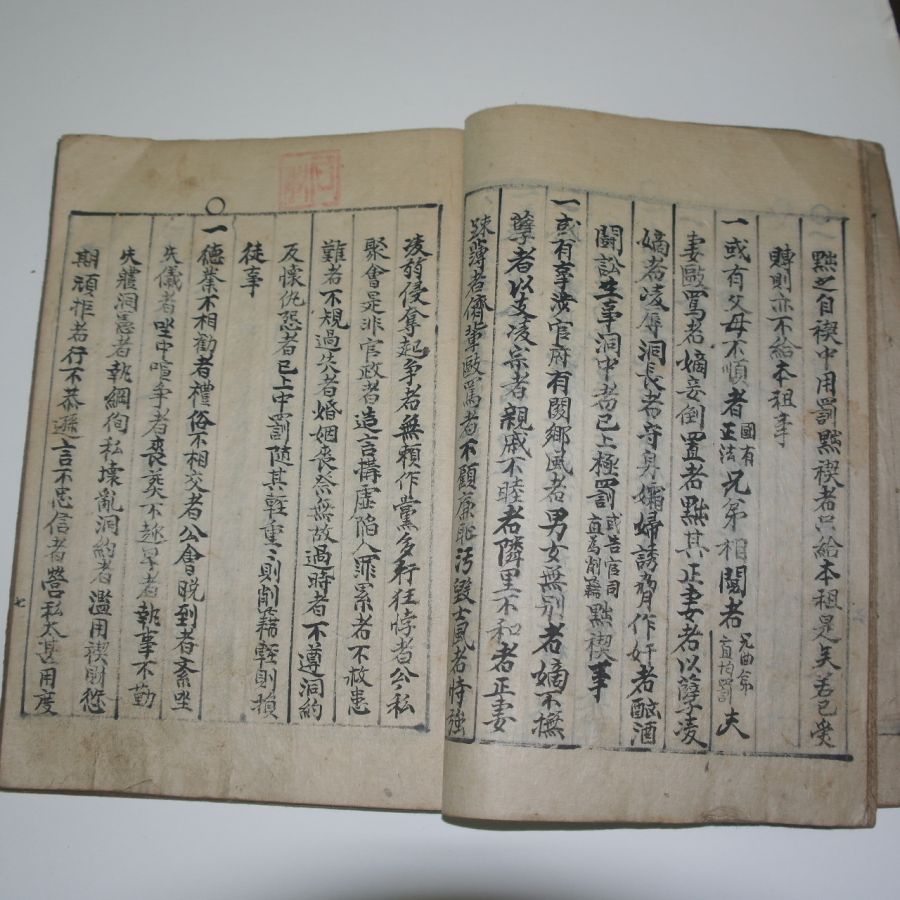 黜之自稧中用罰黜稧者只給本租是矣若已受
賻則亦不給本租事
一或有父母不順者國有正法兄弟相鬩者兄曲弟直均罰夫
妻敺罵者嫡妾倒置者黜其正妻者以孽凌
嫡者凌辱洞長者守身孀婦誘脅作奸者酗酒
鬪訟生事洞中者已上極罰或告官司直爲削籍黜稧事
一或有專涉官府有関鄉風者男女無別者嫡不撫
孽者以支凌宗者親戚不睦者隣里不和者正妻
踈薄者儕輩敺罵者不顧廉恥污毀士風者恃強
凌弱侵奪起爭者無賴作黨多行狂悖者公私
聚會是非官政者造言搆虛陷人罪累者不救患
難者不規過失者婚姻喪祭無故過時者不遵洞約
反懷仇怨者已上中罰随其輕重〻則削籍輕則損
徒事
一德業不相勸者禮俗不相交者公會晚到者紊坐
失儀者坐中喧爭者喪葬不趂早者執事不勤
失軆洞憲者執綱徇私壞亂洞約者濫用稧財愆
期頑拒者行不恭遜言不忠信者營私太甚用度
七